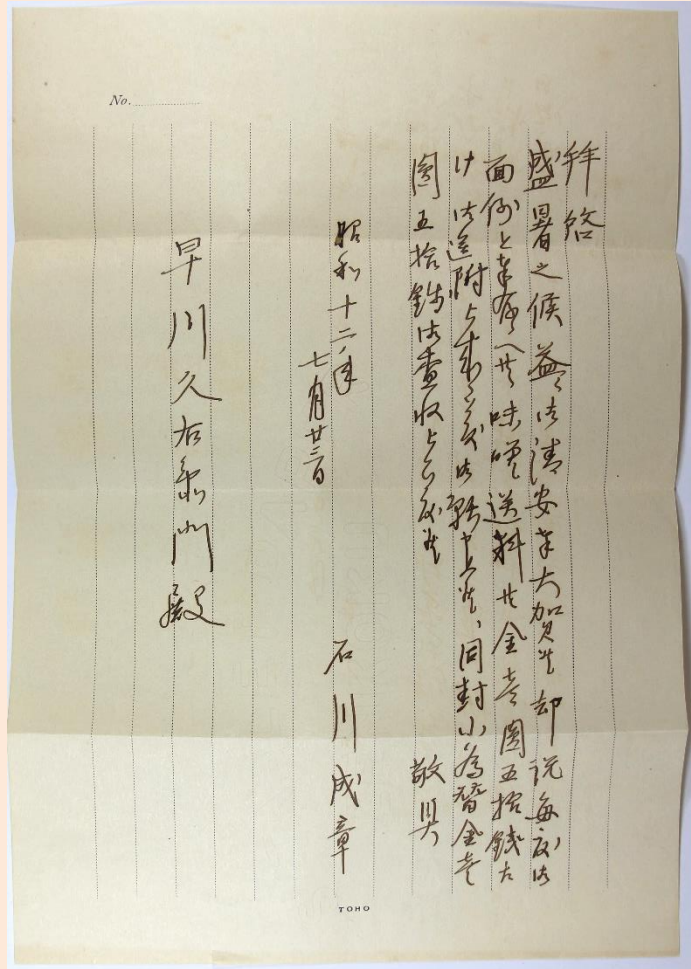 No.
拝啓
盛暑之候益々御清安奉大賀候却説毎度御
面倒と奉存候へ共味噌送料共金壱圓五拾銭丈
け御送附被下度御願申上候、同封小為替金壱
圓五拾銭御査収被下度候
敬具
昭和十二年
七月廿三日
石川成章
早川久右衛門殿
TOHO